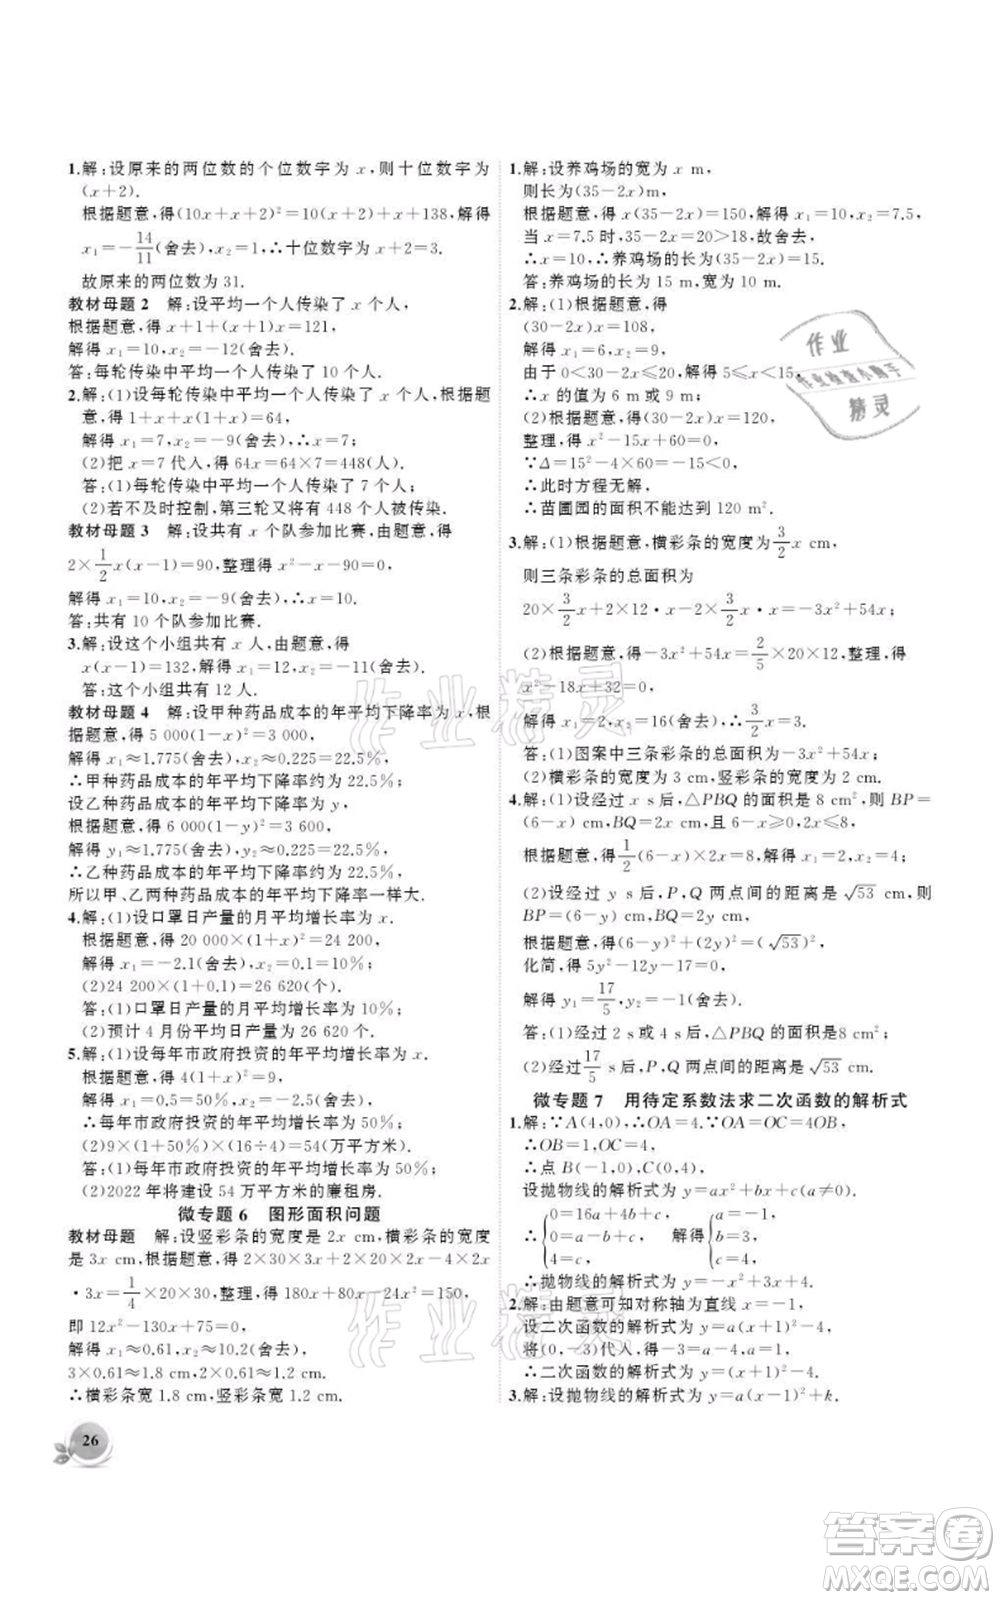 1.解:设原来的两位数的个位数字为 x,则十位数字为
(x+2).
根据题意,得(10x+x+2)²=10(x+2)+x+138,解得
x₁=-14/11(舍去),x₂=1,∴十位数字为 x+2=3.
故原来的两位数为 31.
教材母题 2 解:设平均一个人传染了 x 个人,
根据题意,得 x+1+(x+1)x=121,
解得 x₁=10,x₂=-12(舍去).
答:每轮传染中平均一个人传染了 10 个人.
2.解:(1)设每轮传染中平均一个人传染了 x 个人,根据
题意,得 1+x+x(1+x)=64,
解得 x₁=7,x₂=-9(舍去),∴x=7;
(2)把 x=7 代入,得 64x=64×7=448(人).
答:(1)每轮传染中平均一个人传染了 7 个人;
(2)若不及时控制,第三轮又将有 448 人被传染.
教材母题 3 解:设共有 x 个队参加比赛,由题意,得
2×1/2x(x-1)=90,整理得 x²-x-90=0,
解得 x₁=10,x₂=-9(舍去),∴x=10.
答:共有 10 个队参加比赛.
3.解:设这个小组共有 x 人,由题意,得
x(x-1)=132,解得 x₁=12,x₂=-11(舍去).
答:这个小组共有 12 人.
教材母题 4 解:设甲种药品成本的年平均下降率为 x,根
据题意,得 5 000(1-x)²=3 000,
解得 x₁≈1.775(舍去),x₂≈0.225=22.5%;
∴甲种药品成本的年平均下降率约为 22.5%;
设乙种药品成本的年平均下降率为 y,
根据题意,得 6 000(1-y)²=3 600,
解得 y₁≈1.775(舍去),y₂≈0.225=22.5%,
∴乙种药品成本的年平均下降率约为 22.5%,
所以甲、乙两种药品成本的年平均下降率一样大.
4.解:(1)设口罩日产量的月平均增长率为 x.
根据题意,得 20 000×(1+x)²=24 200,
解得 x₁=-2.1(舍去),x₂=0.1=10%;
(2)24 200×(1+0.1)=26 620(个).
答:(1)口罩日产量的月平均增长率为 10%;
(2)预计 4 月份平均日产量为 26 620 个.
5.解:(1)设每年市政府投资的年平均增长率为 x.
根据题意,得 4(1+x)²=9,
解得 x₁=0.5=50%,x₂=-2.5(舍去),
∴每年市政府投资的年平均增长率为 50%;
(2)9×(1+50%)×(16÷4)=54(万平方米).
答:(1)每年市政府投资的年平均增长率为 50%;
(2)2022 年将建设 54 万平方米的廉租房.
微专题 6 图形面积问题
教材母题 解:设竖彩条的宽度是 2x cm,横彩条的宽度
是 3x cm,根据题意,得 2×30×3x+2×20×2x-4×2x
·3x=1/4×20×30,整理,得 180x+80x-24x²=150,
即 12x²-130x+75=0,
解得 x₁≈0.61,x₂≈10.2(舍去).
3×0.61≈1.8(cm),2×0.61≈1.2(cm).
∴横彩条宽 1.8 cm,竖彩条宽 1.2 cm.
26
1.解:设养鸡场的宽为 x m,
则长为(35-2x)m,
根据题意,得 x(35-2x)=150,解得 x₁=10,x₂=7.5,
当 x=7.5 时,35-2x=20>18,故舍去,
∴x=10,∴养鸡场的长为 35-2x=15.
答:养鸡场的长为 15 m,宽为 10 m.
2.解:(1)根据题意,得
(30-2x)x=108,
解得 x₁=6,x₂=9,
由于 0<30-2x≤20,解得 5≤x<15,
∴x 的值为 6 m 或 9 m;
(2)根据题意,得(30-2x)x=120,
整理,得 x²-15x+60=0,
∵Δ=15²-4×60=-15<0,
∴此时方程无解,
∴苗圃园的面积不能达到 120 m².
3.解:(1)根据题意,横彩条的宽度为3/2x cm,
则三条彩条的总面积为
20×3/2x+2×12·x-2×3/2x·x=-3x²+54x;
(2)根据题意,得-3x²+54x=2/5×20×12,
x²-18x+32=0,
解得 x₁=2,x₂=16(舍去),∴3/2x=3.
答:(1)图案中三条彩条的总面积为-3x²+54x;
(2)横彩条的宽度为 3 cm,竖彩条的宽度为 2 cm.
4.解:(1)设经过 x s后,△PBQ 的面积是 8 cm²,则 BP=
(6-x) cm,BQ=2x cm,且 0≤x≤6,2x≤8,
根据题意,得1/2(6-x)×2x=8,解得 x₁=2,x₂=4;
(2)设经过 y s后,P,Q 两点间的距离是 √53 cm,则
BP=(6-y) cm,BQ=2y cm,
根据题意,得(6-y)²+(2y)²=(√53)²,
化简,得 5y²-12y-17=0,
解得 y₁=17/5,y₂=-1(舍去).
答:(1)经过 2 s 或 4 s后,△PBQ 的面积是8 cm²;
(2)经过17/5 s后,P,Q 两点间的距离为 √53 cm.
微专题 7 用待定系数法求二次函数的解析式
1.解:∵A(4,0),∴OA=4.∵OA=OC=4OB,
∴OB=1,OC=4,
∴点 B(-1,0),C(0,4).
设抛物线的解析式为 y=ax²+bx+c(a≠0).
∴{0=16a+4b+c, 0=a-b+c, 4=c, 解得{a=-1, b=3, c=4,
∴抛物线的解析式为 y=-x²+3x+4.
2.解:由题意可知对称轴为直线 x=-1,
设二次函数的解析式为 y=a(x+1)²-4,
将(0,-3)代入,得 a=1,
∴二次函数的解析式为 y=(x+1)²-4.
3.解:设抛物线的解析式为 y=a(x-1)²+k.
作业
作业检查小助手
精灵
作业精灵
作业精灵
答案圈
MXQE.COM